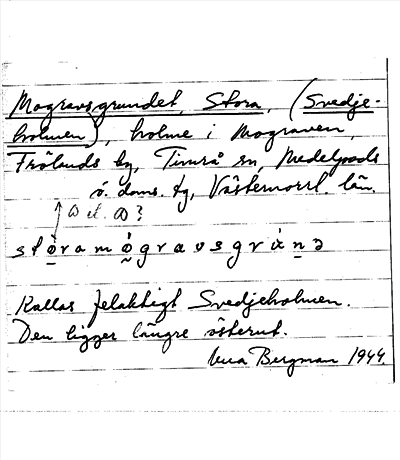 Mogravsgrundet, Stora, (Svedje-
holmen), holme i Mograven,
Frölands by, Timrå sn, Medelpads
ö. doms. tg, Västernorrl. län.
ω el. ɷ?
stòramó̰gravsgrùnə
Kallas felaktigt Svedjeholmen.
Den ligger längre österut.
Bergman 1944.